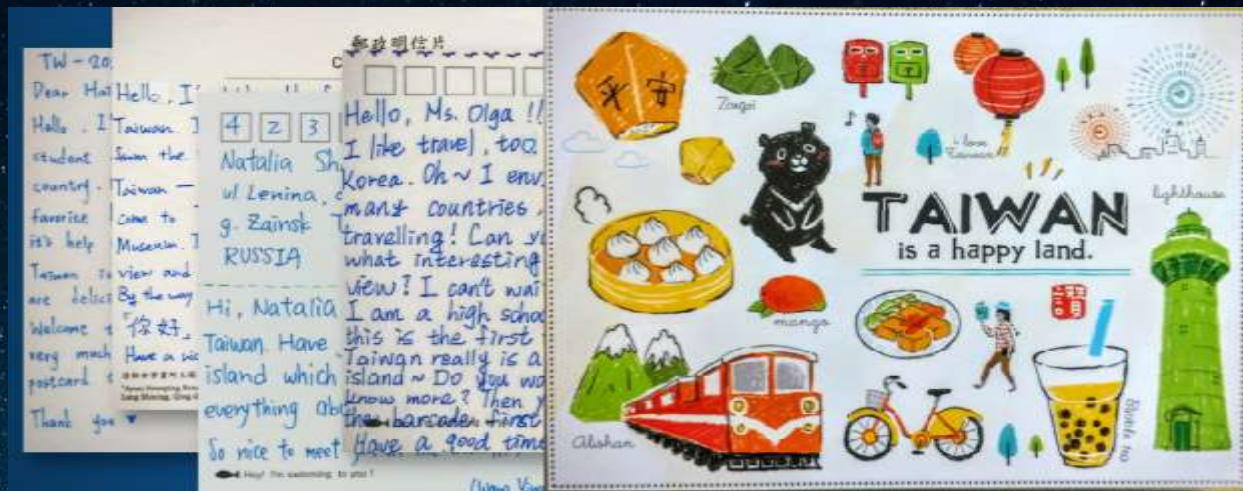 TW-20
Dear Ha
Hello, I'
student
country.
favorite
it's help
Taiwan is
are delic
Welcome t
very much
postcard t
Thank you
Hello, I'
Taiwan. I
Taiwan —
Come to
Museum. T
view and
By the way
「你好」
Have a nic
4 2 3
Natalia Sh
ul Lenina,
g. Zainsk
RUSSIA
Hi, Natalia
Taiwan. Have
island which
everything abo
So nice to meet
Hey! I'm swimming to you!
郵政明信片
Hello, Ms. Olga !!
I like travel, too
Korea. Oh~ I env
many countries,
travelling! Can yo
what interesting
view? I can't wai
I am a high schoo
this is the first
Taiwan really is a
island~ Do you wa
know more? Then y
the barcode first
Have a good time
平安
Zongzi
I love
Taiwan
TAIWAN
is a happy land.
lighthouse
mango
Alishan